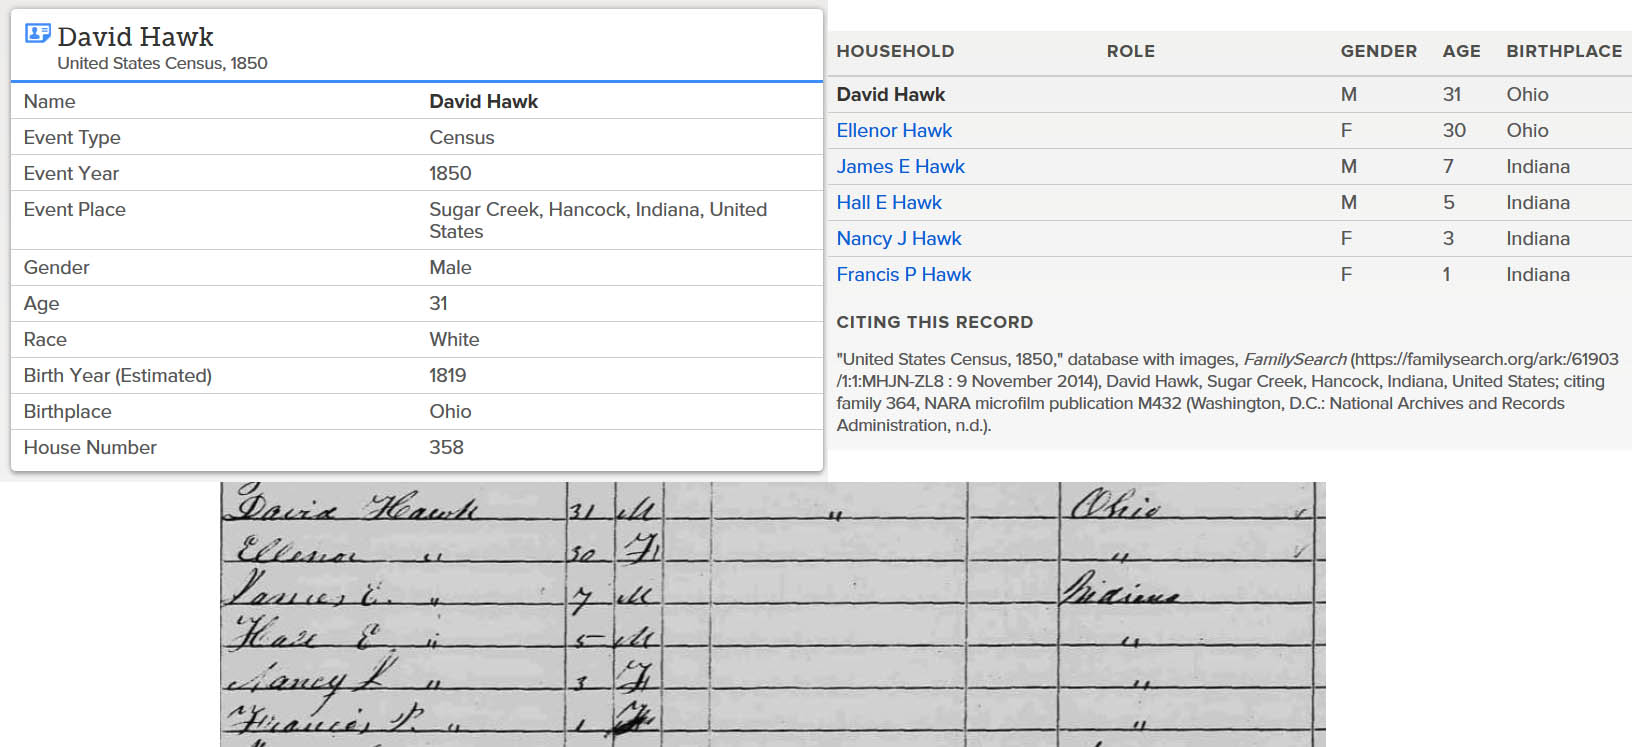 David Hawk
United States Census, 1850
Name David Hawk
Event Type Census
Event Year 1850
Event Place Sugar Creek, Hancock, Indiana, United
States
Gender Male
Age 31
Race White
Birth Year (Estimated) 1819
Birthplace Ohio
House Number 358
HOUSEHOLD ROLE GENDER AGE BIRTHPLACE
David Hawk M 31 Ohio
Ellenor Hawk F 30 Ohio
James E Hawk M 7 Indiana
Hall E Hawk M 5 Indiana
Nancy J Hawk F 3 Indiana
Francis P Hawk F 1 Indiana
CITING THIS RECORD
"United States Census, 1850," database with images, FamilySearch (https://familysearch.org/ark:/61903
/1:1:MHJN-ZL8 : 9 November 2014), David Hawk, Sugar Creek, Hancock, Indiana, United States; citing
family 364, NARA microfilm publication M432 (Washington, D.C.: National Archives and Records
Administration, n.d.).
David Hawk 31 M " Ohio
Ellenor " 30 F "
James E. " 7 M Indiana
E " 5 M "
Nancy J " 3 F "
Francis P. " 1 F "